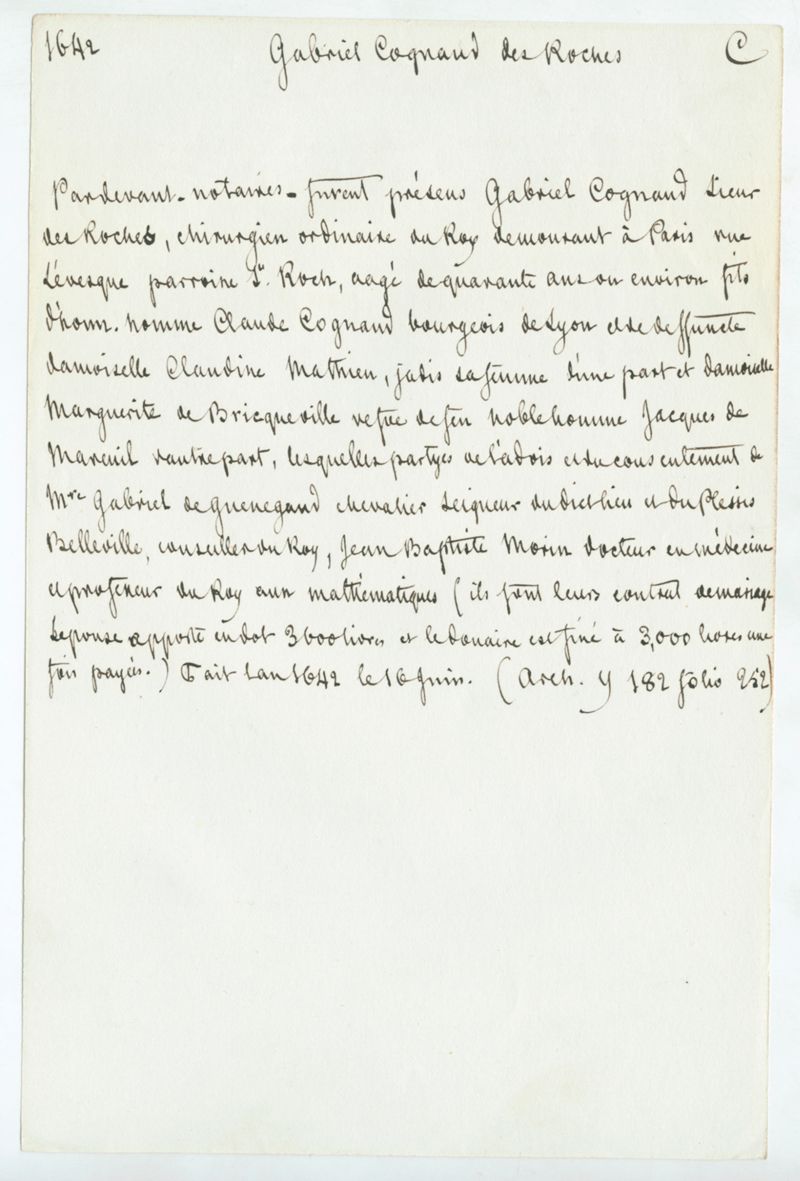 1642 Gabriel Cognaud des Roches C
Pardevant - notaires - furent présens Gabriel Cognaud Sieur
des Roches, chirurgien ordinaire du Roy demourant à Paris rue
Lévesque parroisse St. Roch, aagé de quarante ans ou environ fils
d'honn. homme Claude Cognaud bourgeois de Lyon et de deffuncte
damoiselle Claudine Mathieu, jadis sa femme d'une part et damoiselle
Marguerite de Bricqueville vefve de feu noble homme Jacques de
Mareuil d'autre part, lesquelles partyes de l'advis et du consentement de
Mre Gabriel de Guenegaud chevalier Seigneur dudict lieu et du Plessis
Belleville, conseiller du Roy, Jean Baptiste Morin docteur en médecine
et professeur du Roy aux mathématiques (ils font leurs contrat de mariage
Lepouse apporte en dot 3600 livres et le douaire est fixé à 3,000 livres une
fois payés.) Fait lan 1642 le 16 Juin. (Arch. Y 182 folio 252)